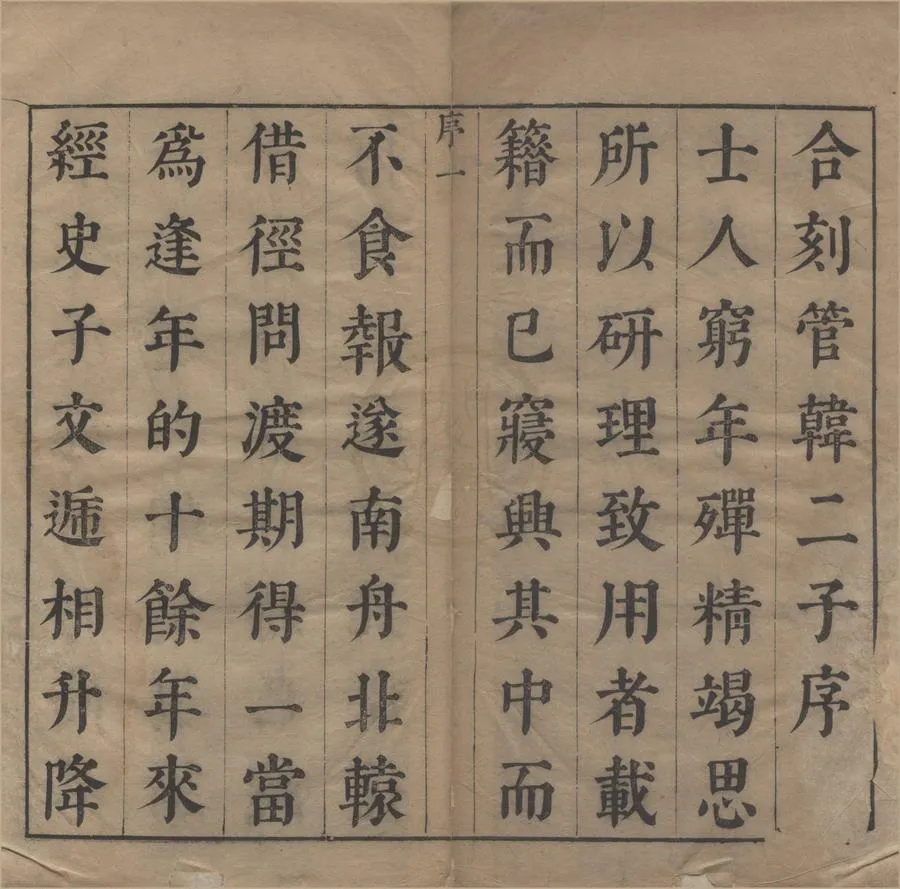 合刻管韓二子序
士人窮年殫精竭思
所以研理致用者載
籍而已寢興其中而
序一
不食報遂南舟北轅
借徑問渡期得一當
為逢年的十餘年來
經史子文遞相升降